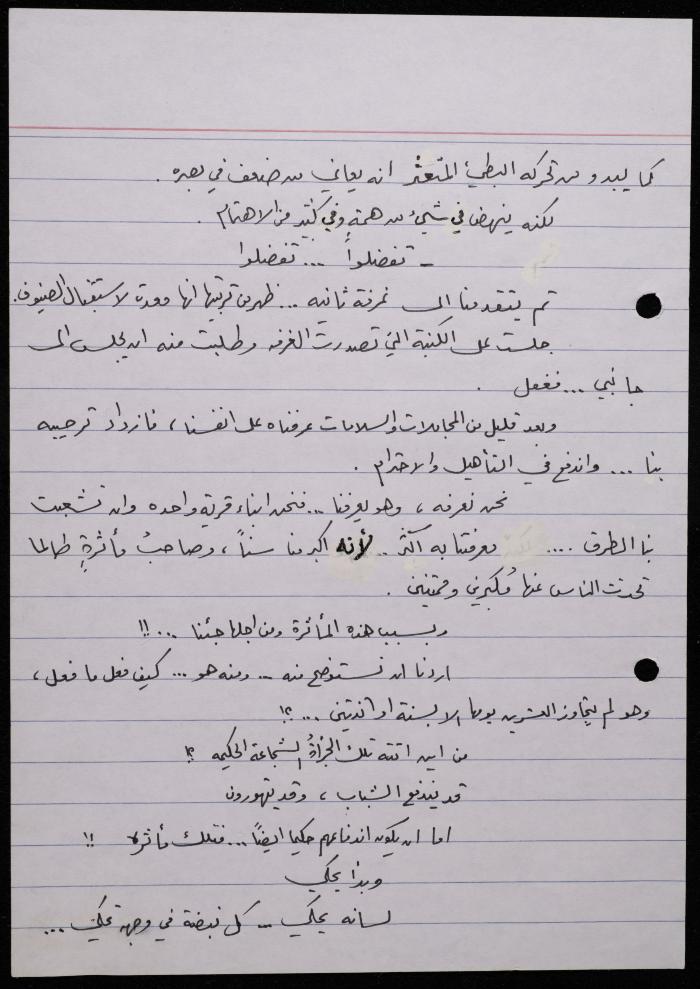 كما يبدو من تحركه البطيء المتعثر انه يعاني من ضعف في بصره .
لكنه ينهض في شيء من همة وفي كثير من الاهتمام .
ـ تفضلوا ... تفضلوا
ثم يتقدمنا الى غرفة ثانيه ... ظهر من ترتيبها انها معدة لاستقبال الضيوف.
جلست على الكنبة التي تصدرت الغرفه وطلبت منه ان يجلس الى
جانبي ... ففعل .
وبعد قليل من المجاملات والسلامات عرفناه على انفسنا ، فازداد ترحيبه
بنا ... واندفع في التأهيل والاحترام .
نحن نعرفه ، وهو يعرفنا ... فنحن ابناء قرية واحده وان تشعبت
بنا الطرق .... معرفتنا به اكثر .. لأنه اكبر منا سناً ، وصاحبُ مأثرةٍ طالما
تحدث الناس عنها مُكبرين ومثمنين .
وبسبب هذه المأثرة ومن اجلها جئنا ... !!
اردنا ان نستوضح منه ... ومنه هو ... كيف فعل ما فعل ،
وهو لم يتجاوز العشرين يومها الا بسنة او اثنتين ... ؟!
من اين اتته تلك الجرأةُ الشجاعة الحكيمه ؟!
قد يندفع الشباب ، وقد يتهورون
اما ان يكون اندفاعهم حكيما ايضاً ... فتلك مأثرة !!
وبدأ يحكي
لسانه يحكي ... كل نبضة في وجهه تحكي ...